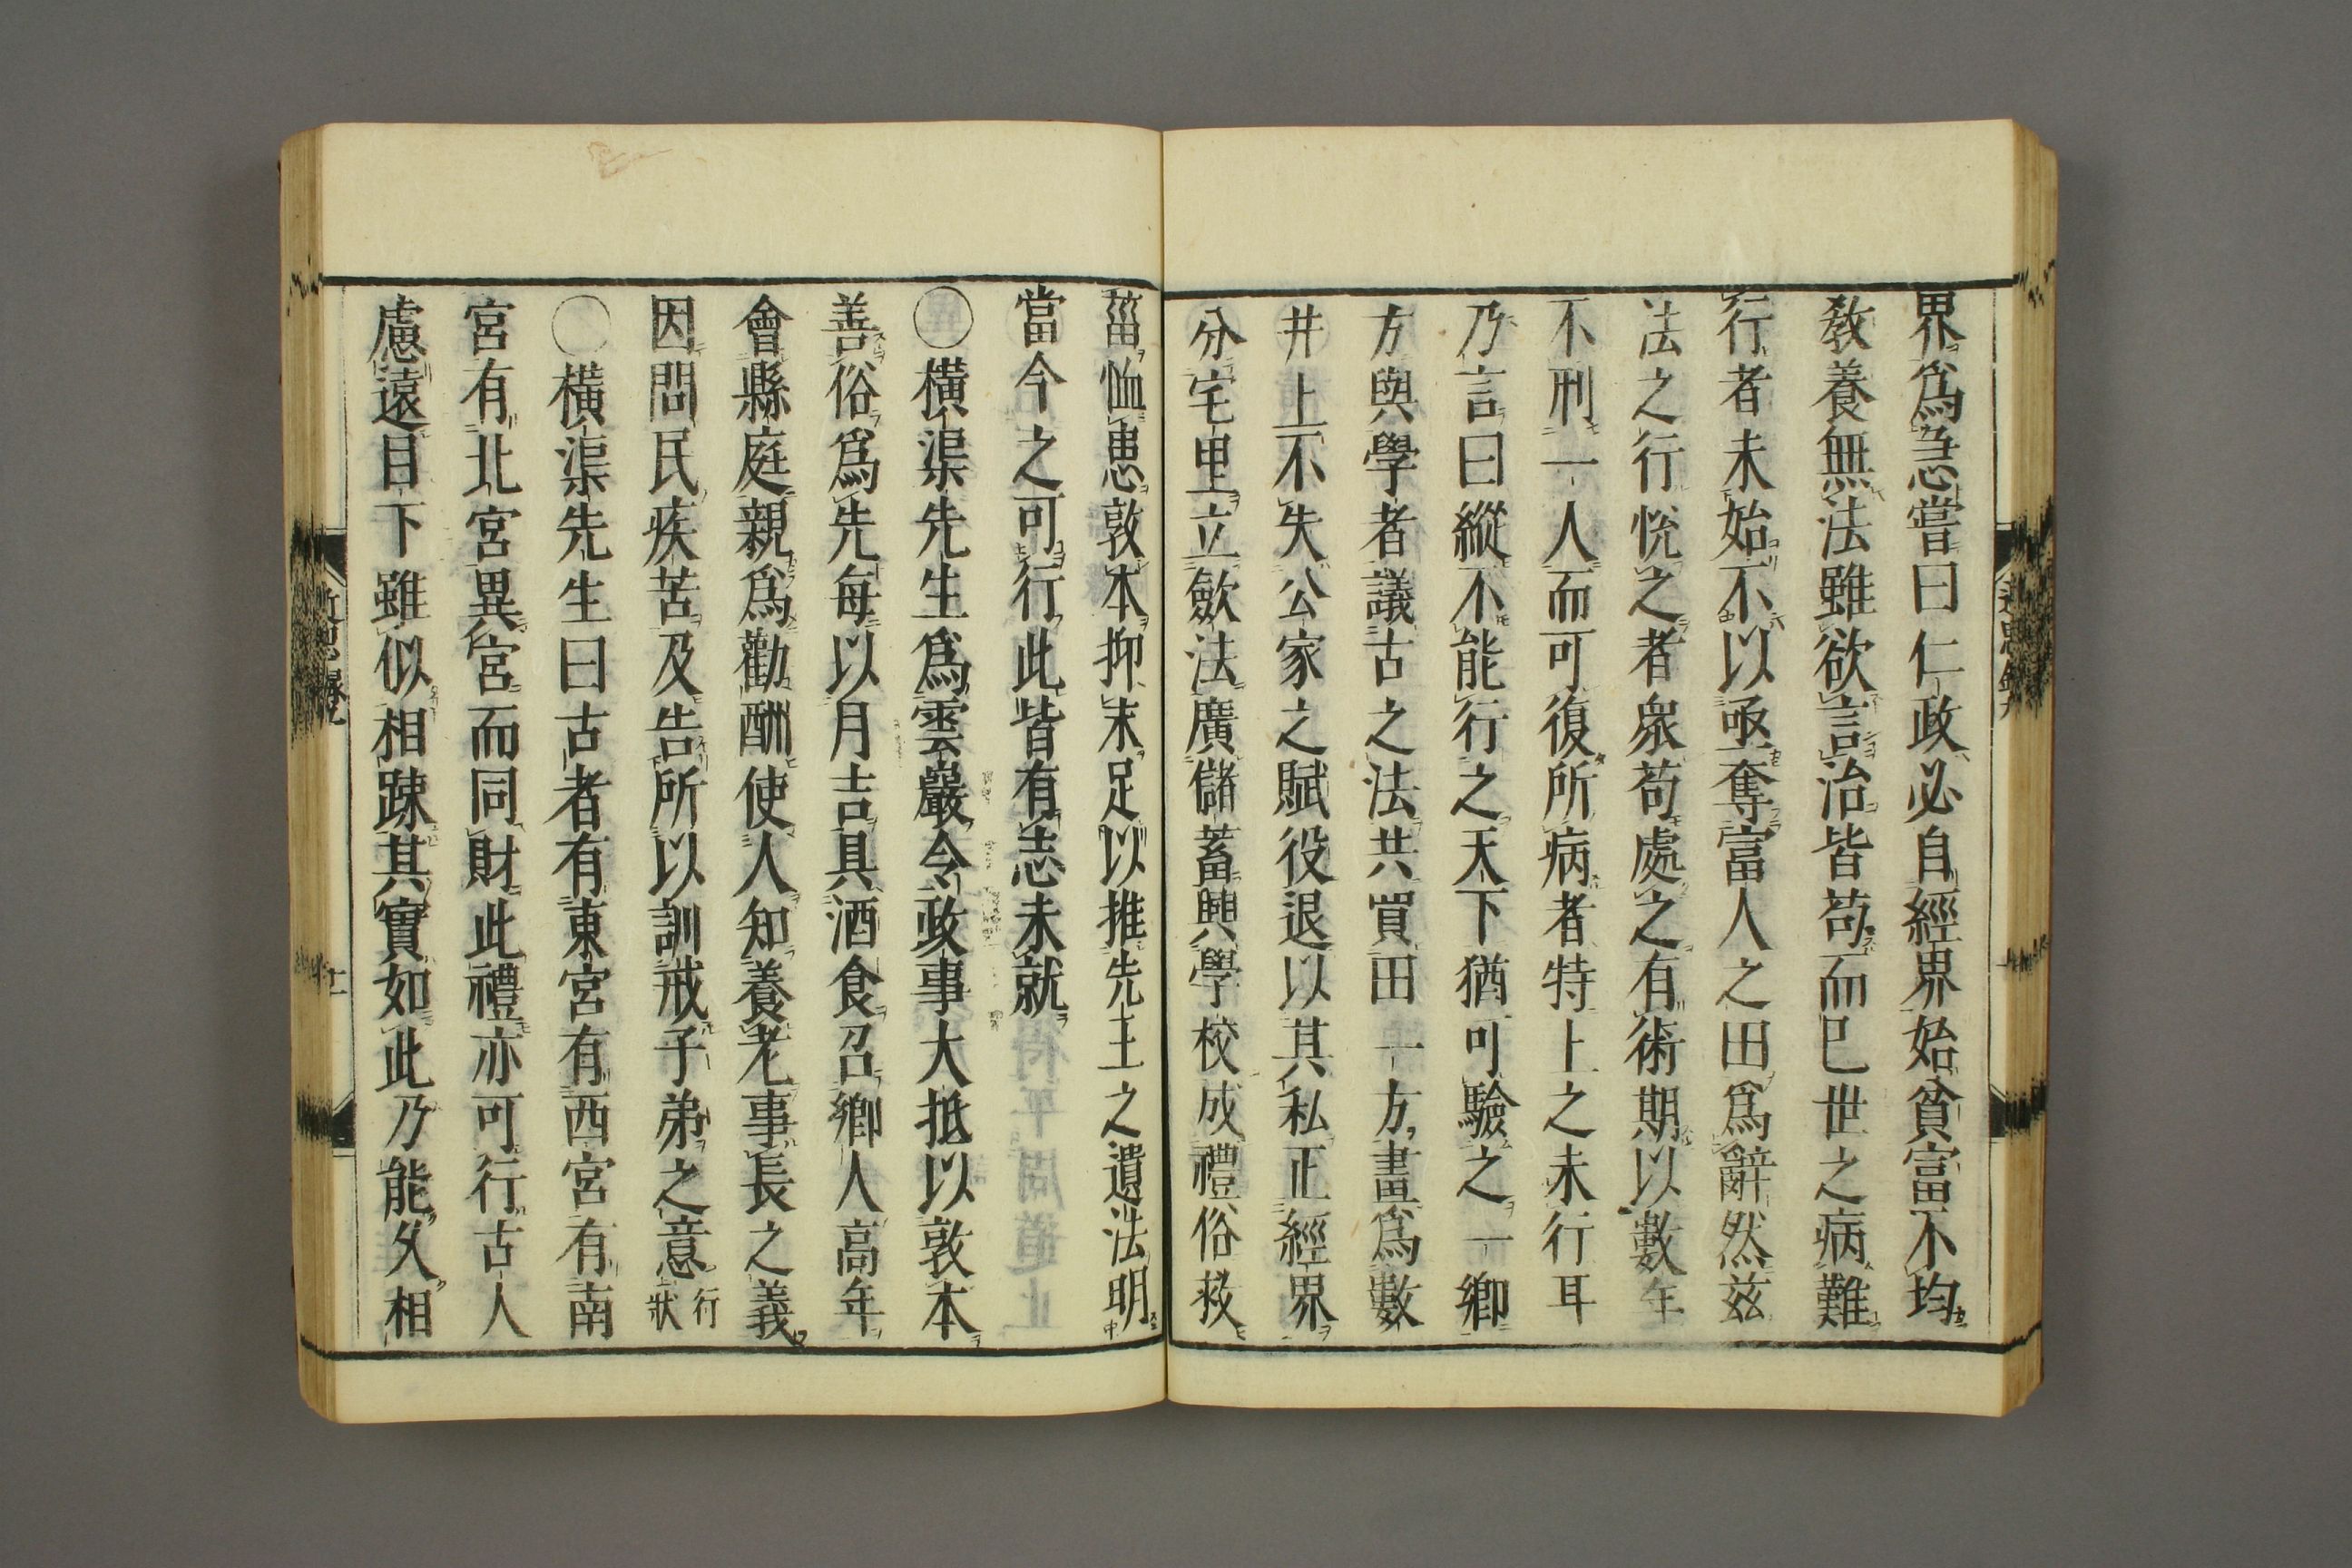 界爲急嘗曰仁政必自經界始貧富不均
敎養無法雖欲言治皆苟而巳世之病難
行者未始不以亟奪富人之田爲辭然茲
法之行悅之者衆苟處之有術期以數年
不刑一人而可復所病者特上之未行耳
乃言曰縱不能行之天下猶可驗之一鄉
方與學者議古之法共買田一方畫爲數
井上不失公家之賦役退以其私正經界
分宅里立斂法廣儲蓄興學校成禮俗救
菑恤患敦本抑末足以推先王之遺法明
當今之可行此皆有志未就
◯橫渠先生爲雲巖令政事大抵以敦本
善俗爲先每以月吉具酒食召鄉人高年
會縣庭親爲勸酬使人知養老事長之義
因問民疾苦及告所以訓戒子弟之意行狀
◯橫渠先生曰古者有東宮有西宮有南
宮有北宮異宮而同財此禮亦可行古人
慮遠目下雖似相踈其實如此乃能久相